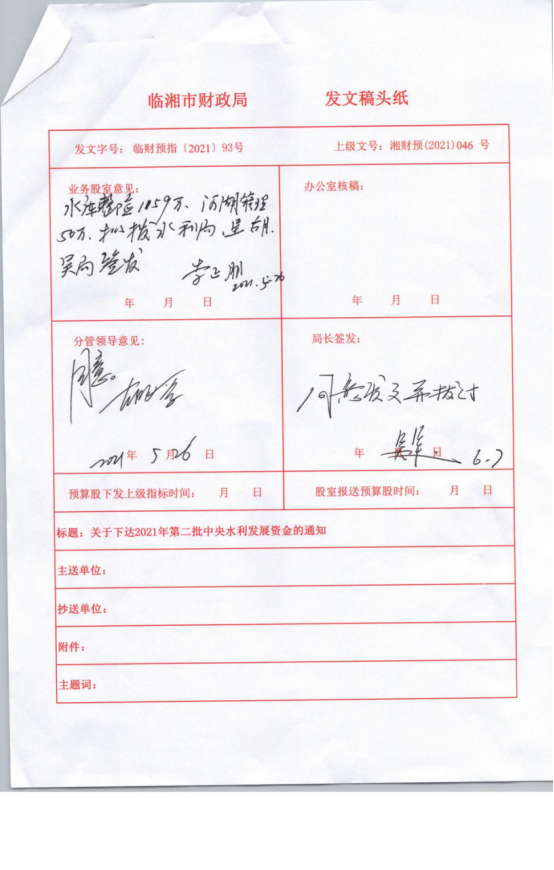 临湘市财政局 发文稿头纸
发文字号：临财预指〔2021〕93号 上级文号：湘财预(2021)046 号
业务股室意见：
水库整险1859万、河湖管理
50万、拟拨水利局,呈胡、
吴局签发
2021.5.26
年 月 日
办公室核稿：
年 月 日
分管领导意见：
同意。
2021年 5月26日
局长签发：
同意发文并拨付
年 月 日 6.7
预算股下发上级指标时间： 月 日
股室报送预算股时间： 月 日
标题：关于下达2021年第二批中央水利发展资金的通知
主送单位：
抄送单位：
附件：
主题词：